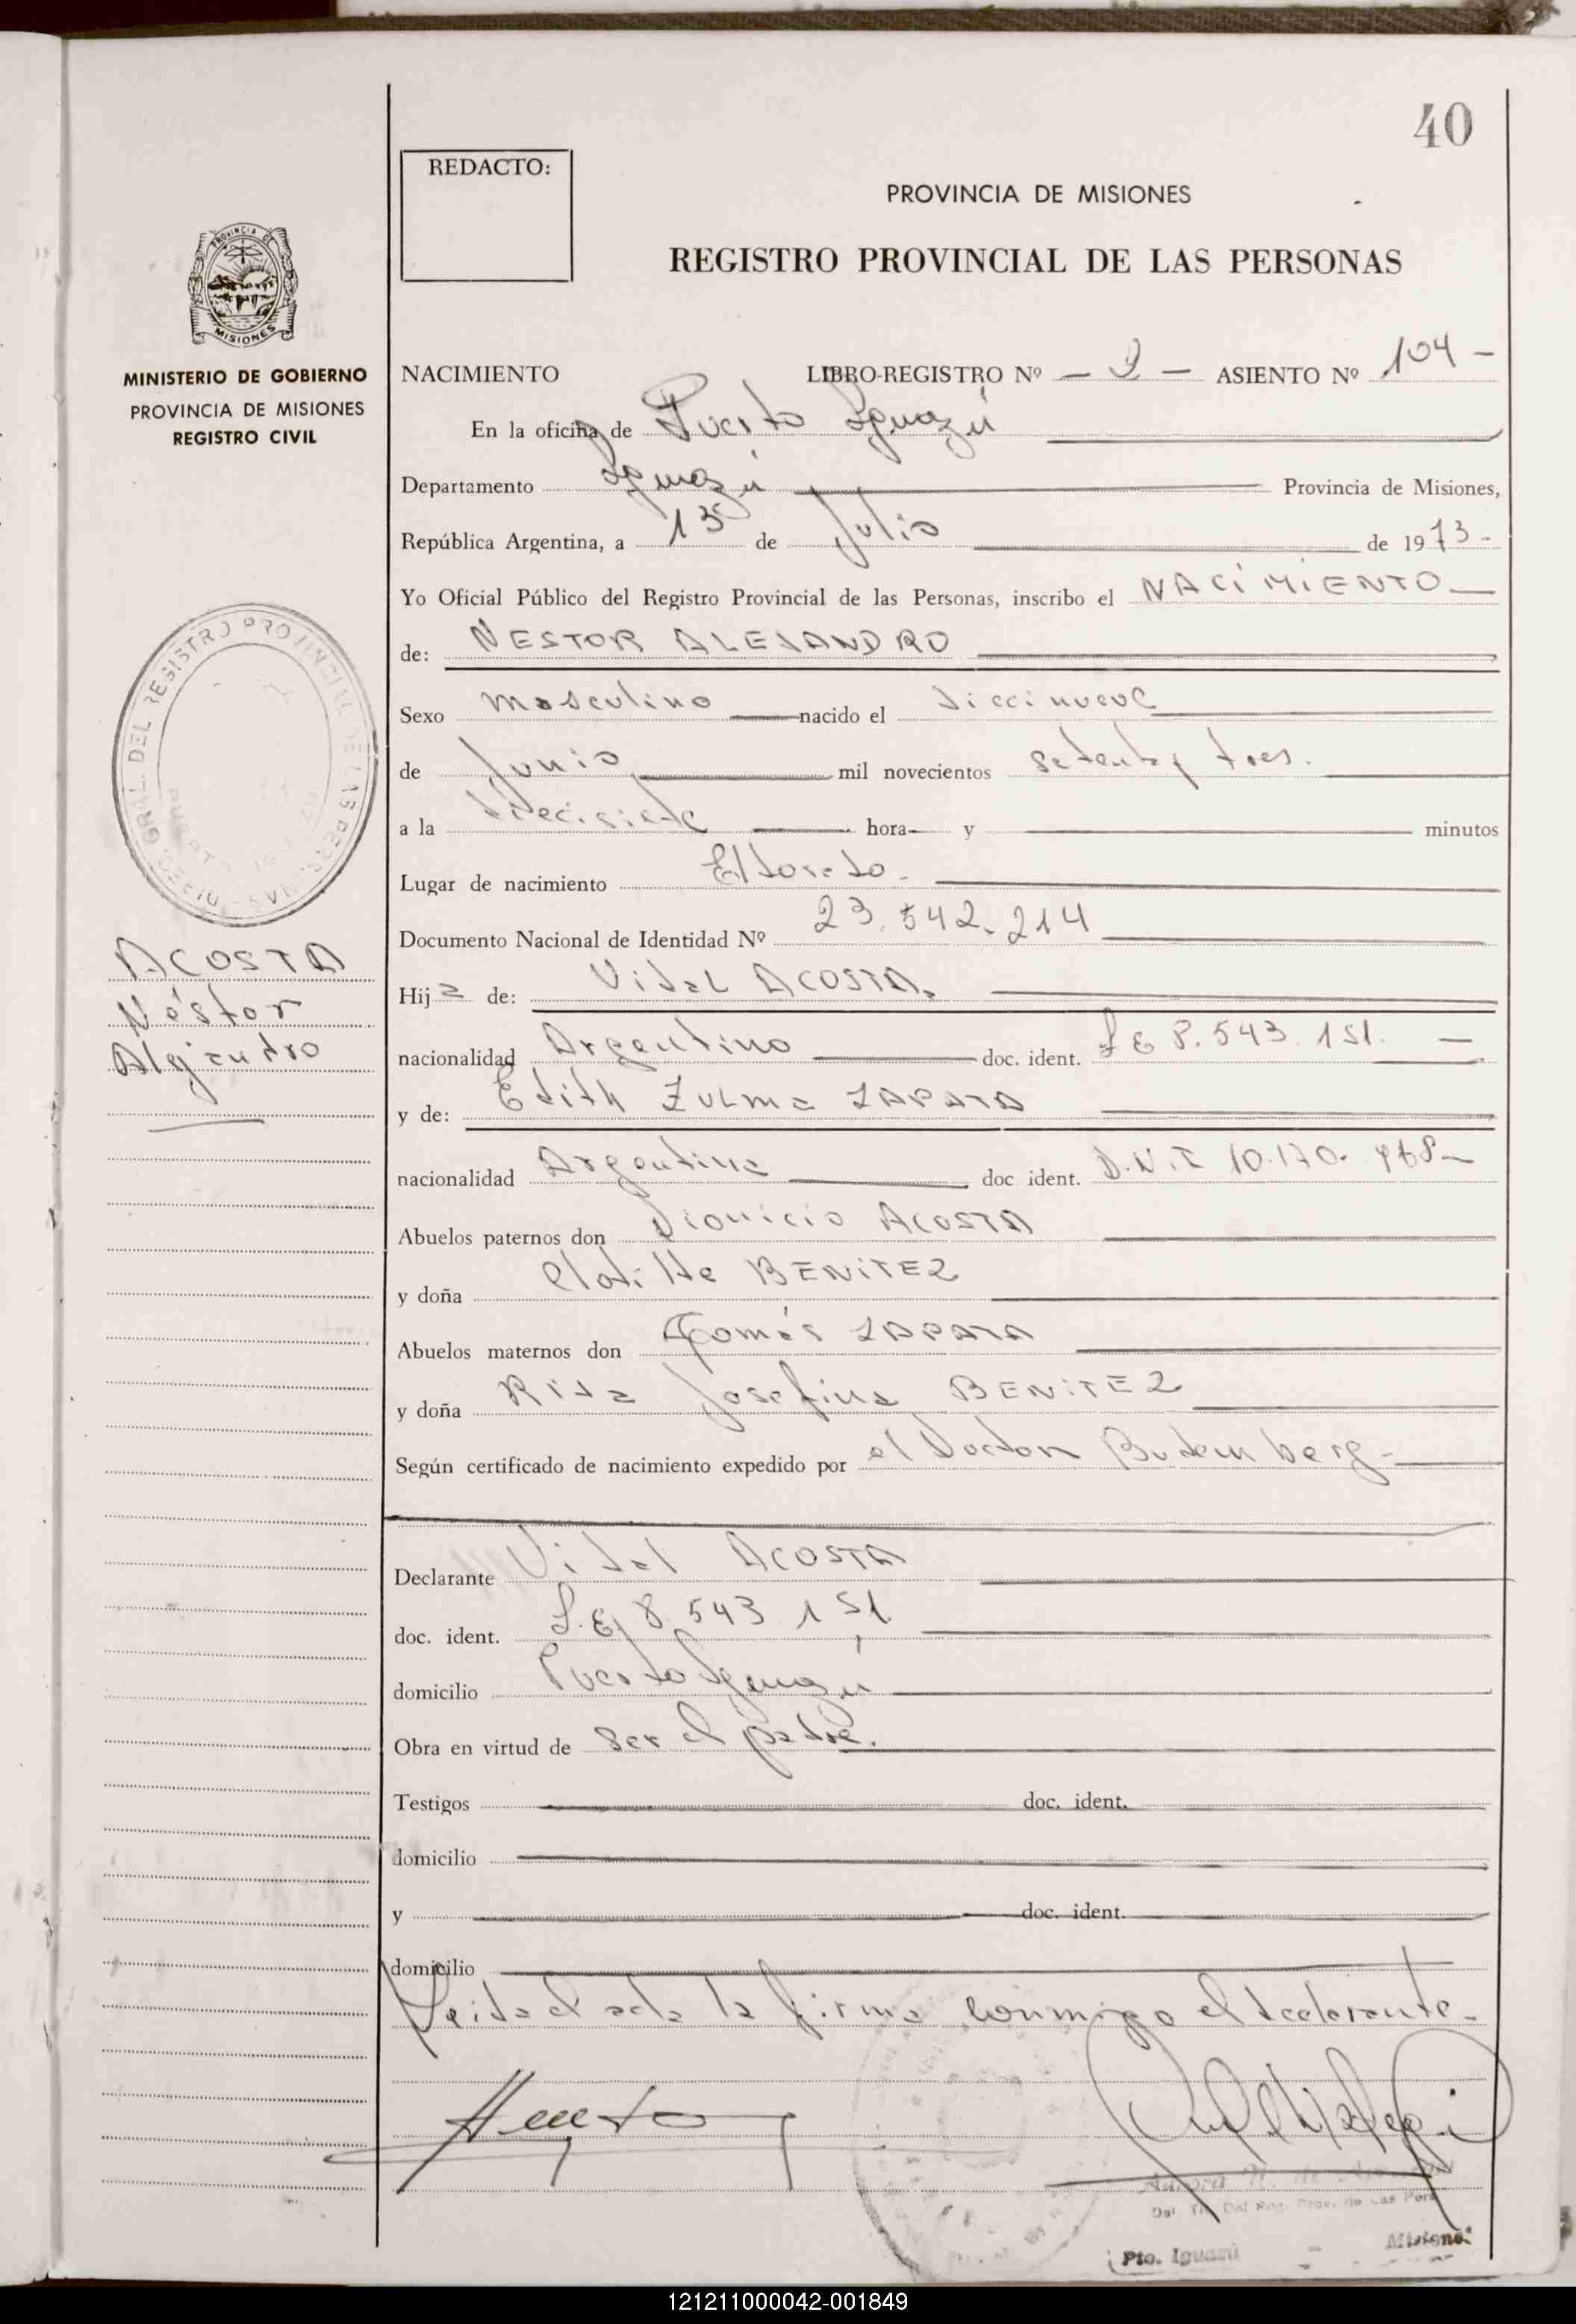 40
REDACTO:
PROVINCIA DE MISIONES
REGISTRO PROVINCIAL DE LAS PERSONAS
PROVINCIA DE
MISIONES
MINISTERIO DE GOBIERNO
PROVINCIA DE MISIONES
REGISTRO CIVIL
NACIMIENTO LIBRO-REGISTRO Nº — 2 — ASIENTO Nº 104 —
En la oficina de Puerto Iguazú
Departamento Iguazú Provincia de Misiones,
República Argentina, a 13 de Julio de 1973-
Yo Oficial Público del Registro Provincial de las Personas, inscribo el NACIMIENTO
de: NESTOR ALEJANDRO
Sexo masculino nacido el diecinueve
de Junio mil novecientos setenta y tres.
a la diecisiete hora y minutos
Lugar de nacimiento Eldorado -
Documento Nacional de Identidad Nº 23.542.214
DIREC. GRAL. DEL REGISTRO PROVINCIAL DE LAS PERSONAS
PUERTO IGUAZU
ACOSTA
Néstor
Alejandro
Hija de: Vidal ACOSTA.
nacionalidad Argentino doc. ident. L E 8.543.151. —
y de: Edith Zulma ZAPATA
nacionalidad Argentina doc ident. D.N.I 10.170.
Abuelos paternos don Dionicio ACOSTA
y doña Clotilde BENITEZ
Abuelos maternos don Tomás ZAPATA
y doña Rita Josefina BENITEZ
Según certificado de nacimiento expedido por el Doctor
Declarante Vidal ACOSTA
doc. ident. L.E, 8.543.151.
domicilio Puerto Iguazú
Obra en virtud de ser el padre.
Testigos doc. ident.
domicilio
y doc. ident.
domicilio
Leida el acta la firma conmigo el declarante-
Aurora
Del Reg. Prov. de Las Pers.
Pto. Iguazú Misiones
121211000042-001849